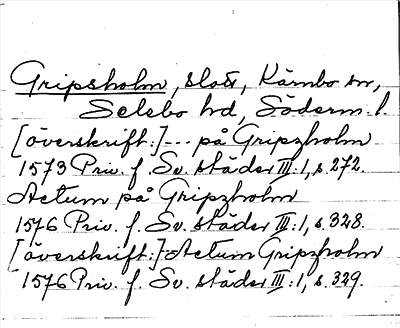 Gripsholm, slott, Kärnbo sn,
Selebo hd, Söderm. l.
[överskrift:] --- på Gripzholm
1573 Priv. f. Sv. städer III:1, s. 272.
Actum på Gripzholm
1576 Priv. f. Sv. städer III:1, s. 328.
[överskrift:] Actum Gripzholm
1576 Priv. f. Sv. städer III:1, s. 329.